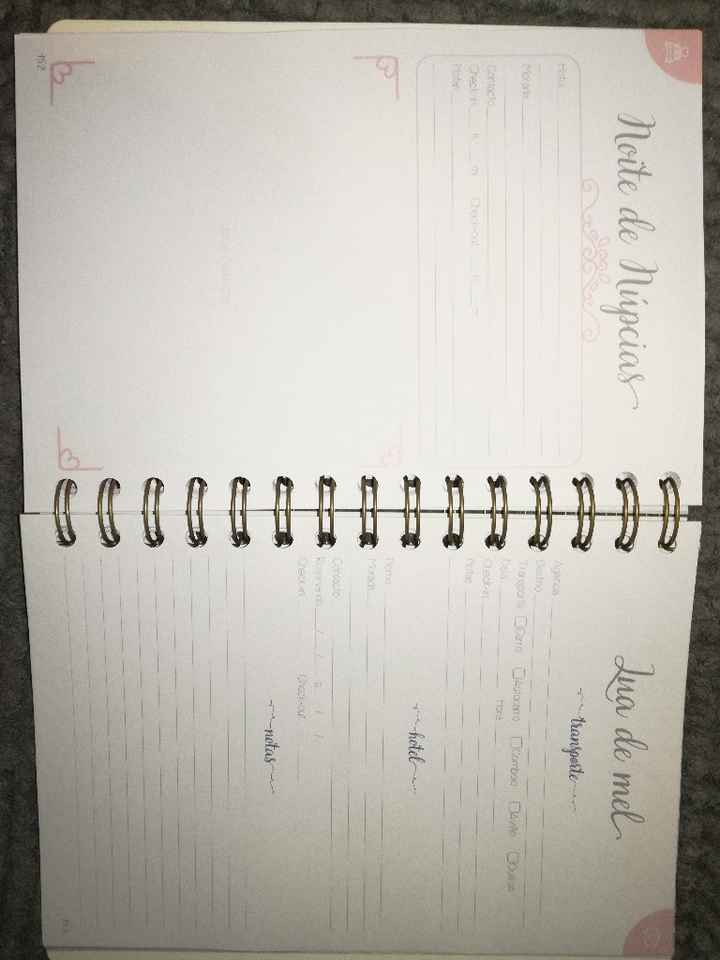 Noite de Núpcias
Hotel
Morada
Contacto
Check-in h m Check-out h m
Notas
152
Lua de mel
transporte
Agência
Destino
Transporte Carro Autocarro Comboio Avião Cruzeiro
Data Hora
Check-in
Notas
hotel
Nome
Morada
Contacto
Reserva de / / a / /
Check-in Check-out
notas